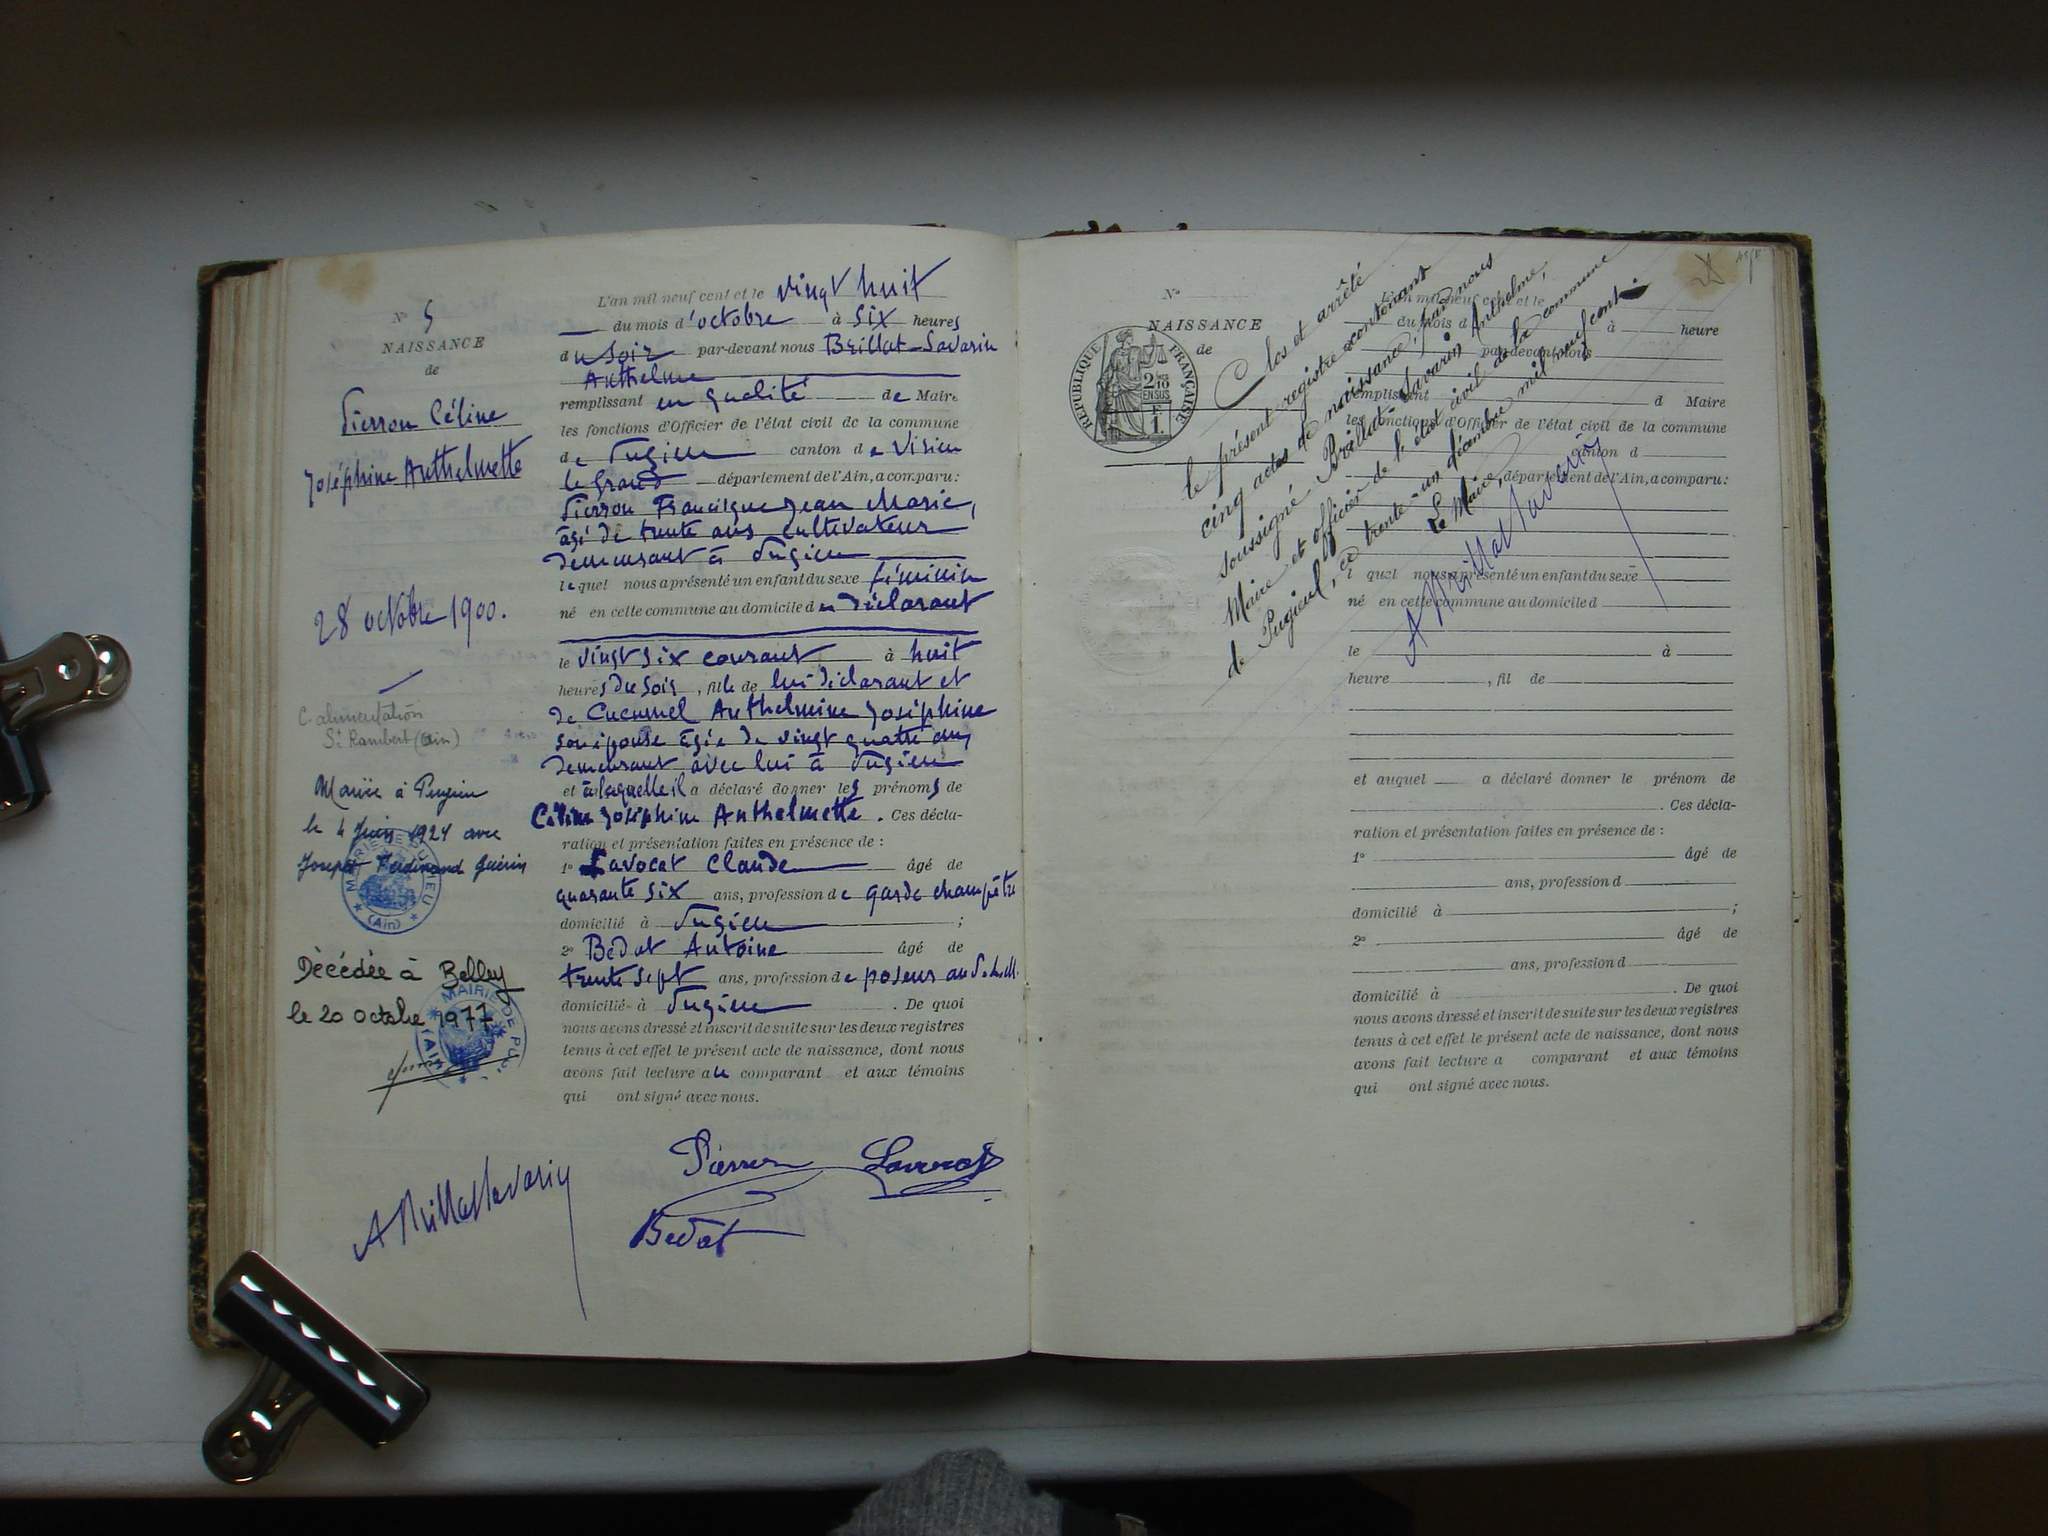 N° 5
NAISSANCE
de
Pierron Céline
Joséphine Anthelmette
28 octobre 1900.
C. alimentation
St Rambert (Ain)
Mariée à Pugieu
le 4 Juin 1921 avec
Joseph Ferdinand Guérin
MAIRIE DE PUGIEU
(Ain)
Décédée à Belley
le 20 octobre 1977
MAIRIE DE PU
(AIN)
L'an mil neuf cent et le vingt huit
du mois d'octobre à six heures
du soir par-devant nous Brillat-Savarin
Anthelme
remplissant en qualité de Maire
les fonctions d'Officier de l'état civil de la commune
de Pugieu canton de Virieu
le Grand département de l'Ain, a comparu :
Pierron Francisque Jean Marie,
âgé de trente ans cultivateur
demeurant à Pugieu
lequel nous a présenté un enfant du sexe féminin
né en cette commune au domicile du déclarant
le vingt six courant à huit
heures du soir, fille de lui déclarant et
de Cucumel Anthelmine Joséphine
son épouse âgée de vingt quatre ans
demeurant avec lui à Pugieu
et à laquelle il a déclaré donner les prénoms de
Céline Joséphine Anthelmette. Ces décla-
ration et présentation faites en présence de :
1° Lavocat Claude âgé de
quarante six ans, profession de garde champêtre
domicilié à Pugieu ;
2° Bedat Antoine âgé de
trente sept ans, profession de poseur au P.L.M.
domicilié à Pugieu. De quoi
nous avons dressé et inscrit de suite sur les deux registres
tenus à cet effet le présent acte de naissance, dont nous
avons fait lecture au comparant et aux témoins
qui ont signé avec nous.
Pierron Lavocat
A Brillat Savarin
Bedat
N°
NAISSANCE
de
RÉPUBLIQUE FRANÇAISE
2/10
EN SUS
1 F.
Clos et arrêté
le présent registre contenant
cinq actes de naissance, par nous
soussigné Brillat-Savarin Anthelme,
Maire et officier de l'état civil de la commune
de Pugieu, ce trente-un décembre mil neuf cent.
Le Maire,
A Brillat Savarin
L'an mil neuf cent et le
du mois d à heure
par-devant nous
remplissant d Maire
les fonctions d'Officier de l'état civil de la commune
d canton d
département de l'Ain, a comparu :
l quel nous a présenté un enfant du sexe
né en cette commune au domicile d
le à
heure , fil de
et auquel a déclaré donner le prénom de
. Ces décla-
ration et présentation faites en présence de :
1° âgé de
ans, profession d
domicilié à ;
2° âgé de
ans, profession d
domicilié à . De quoi
nous avons dressé et inscrit de suite sur les deux registres
tenus à cet effet le présent acte de naissance, dont nous
avons fait lecture a comparant et aux témoins
qui ont signé avec nous.